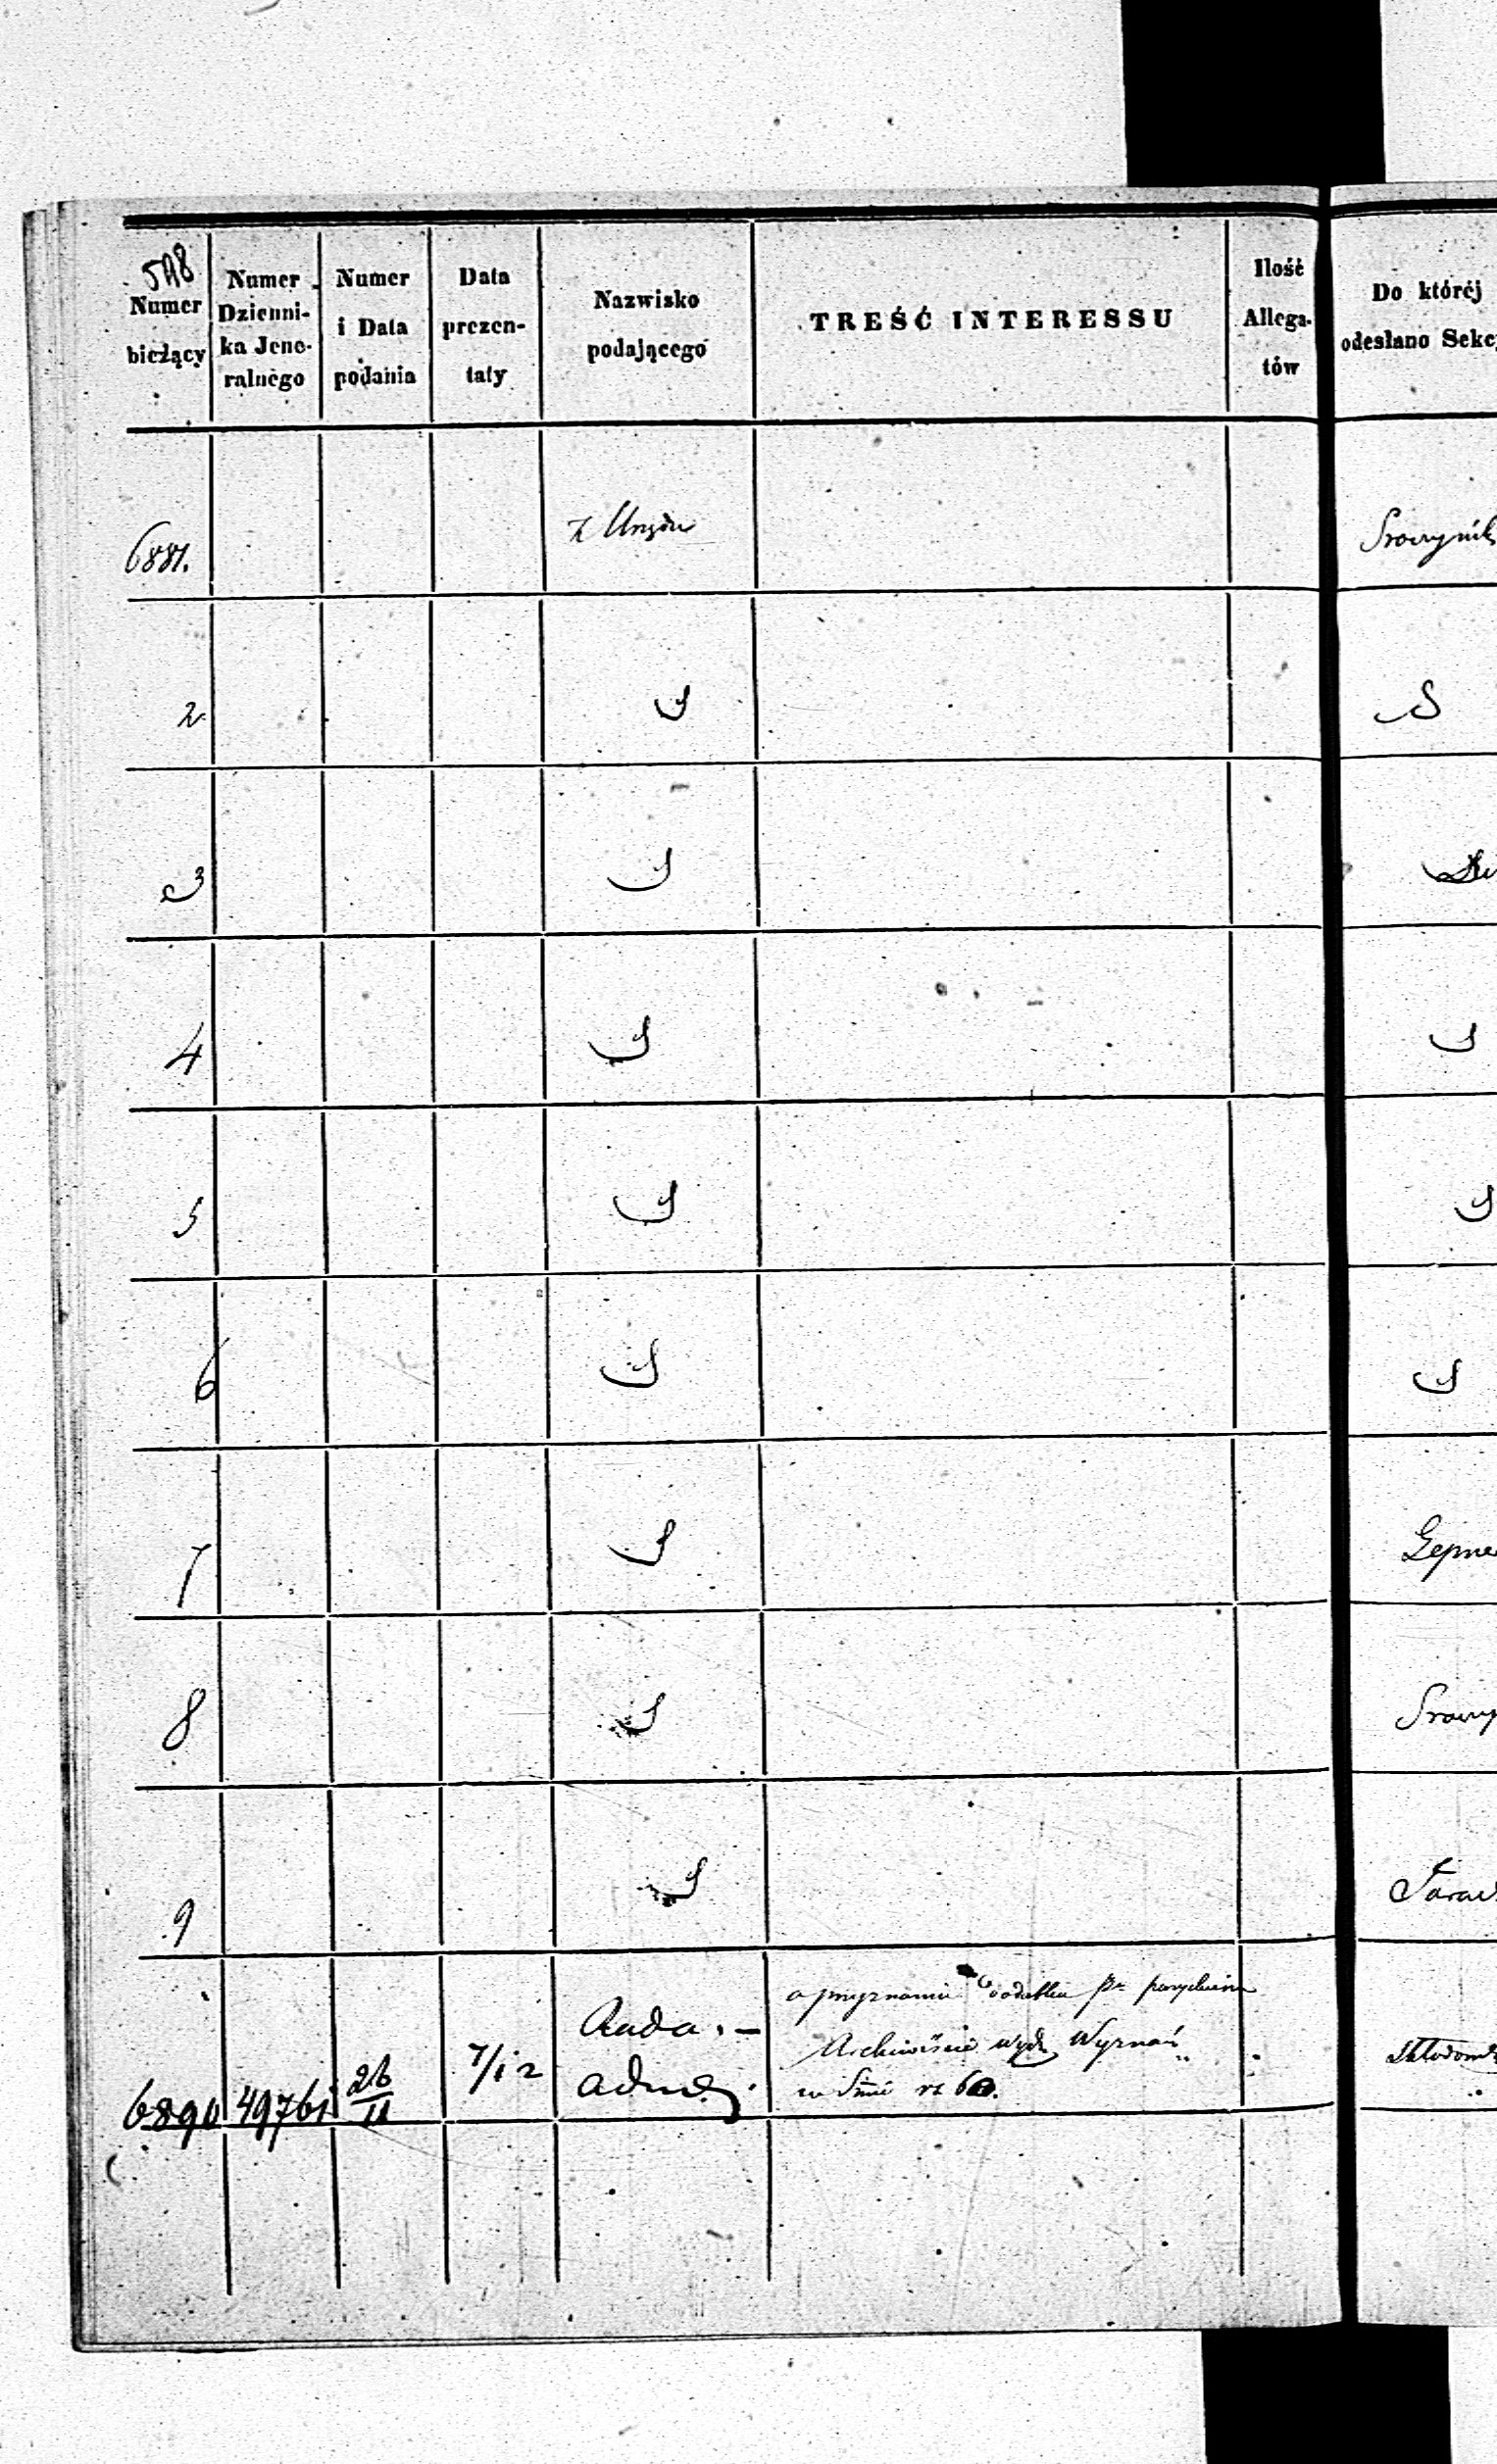 548
Numer
bieżący
Numer
Dzienni-
ka Jene-
ralnego
Numer
i Data
podania
Data
prezen-
taty
Nazwisko
podającego
TREŚĆ INTERESSU
Ilość
Allega-
tów
Do której
odesłano Sekc
6881.
z Urzędu
2
3
4
5
6
7
Gepne
8
9
6890
49761
26/11
7/12
Rada
Admn
o przyznanie dodatku
Archiwiście wydz Wyznań
w Smie rs 60.